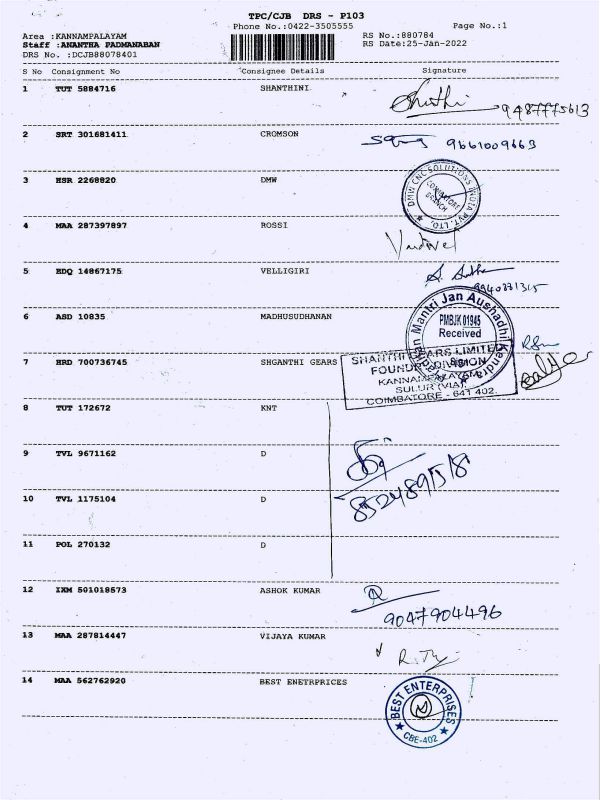 TPC/CJB DRS - P103
Phone No.:0422-3505555 Page No.:1
Area :KANNAMPALAYAM RS No.:880784
Staff :ANANTHA PADMANABAN RS Date:25-Jan-2022
DRS No. :DCJB88078401
S No Consignment No Consignee Details Signature
1 TUT 5884716 SHANTHINI
9487775613
2 SRT 301681411 CROMSON 9661009663
3 HSR 2268820 DMW
DMW CNC SOLUTIONS INDIA PVT. LTD.
COIMBATORE BRANCH
4 MAA 287397897 ROSSI
5 BDQ 14867175 VELLIGIRI
6 ASD 10835 MADHUSUDHANAN
Mantri Jan Aushadhi Kendra
PMBJK 01845
Received
7 HRD 700736745 SHGANTHI GEARS
SHANTHI GEARS LIMITED
FOUNDRY DIVISION
KANNAMPALAYAM
SULUR (VIA),
COIMBATORE - 641 402.
8 TUT 172672 KNT
9 TVL 9671162 D
10 TVL 1175104 D
11 POL 270132 D
12 IXM 501018573 ASHOK KUMAR
9047904496
13 MAA 287814447 VIJAYA KUMAR
14 MAA 562762920 BEST ENETRPRICES
BEST ENTERPRISES
CBE-402